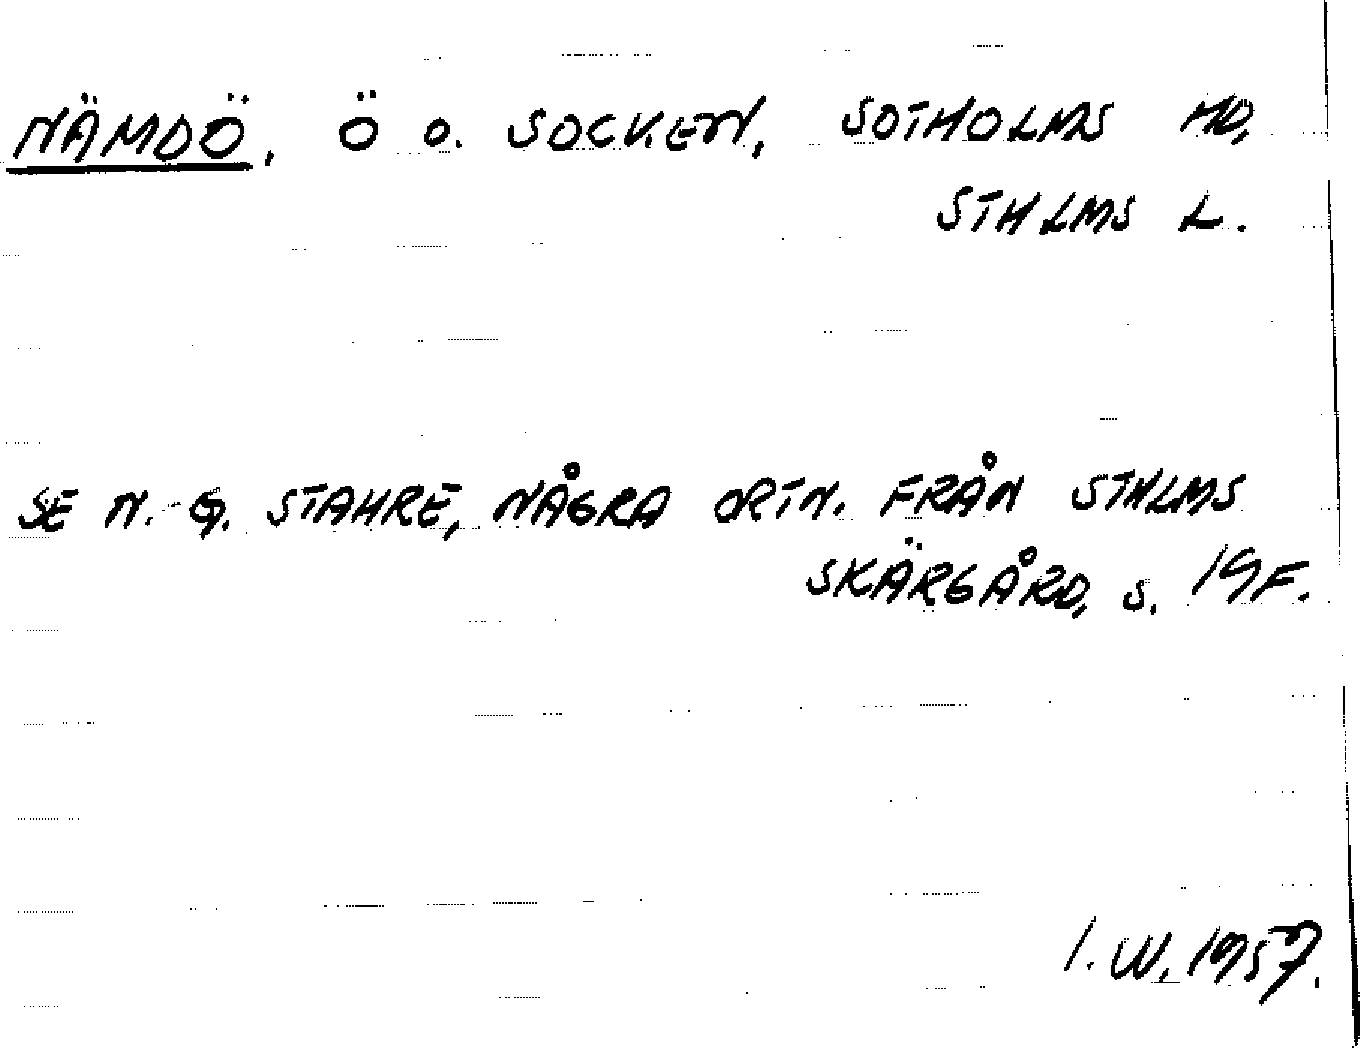 NÄMDÖ, Ö O. SOCKEN, SOTHOLMS HD,
STHLMS L.
SE N.-G. STAHRE, NÅGRA ORTN. FRÅN STHLMS
SKÄRGÅRD, S. 19F.
I.W. 1957.